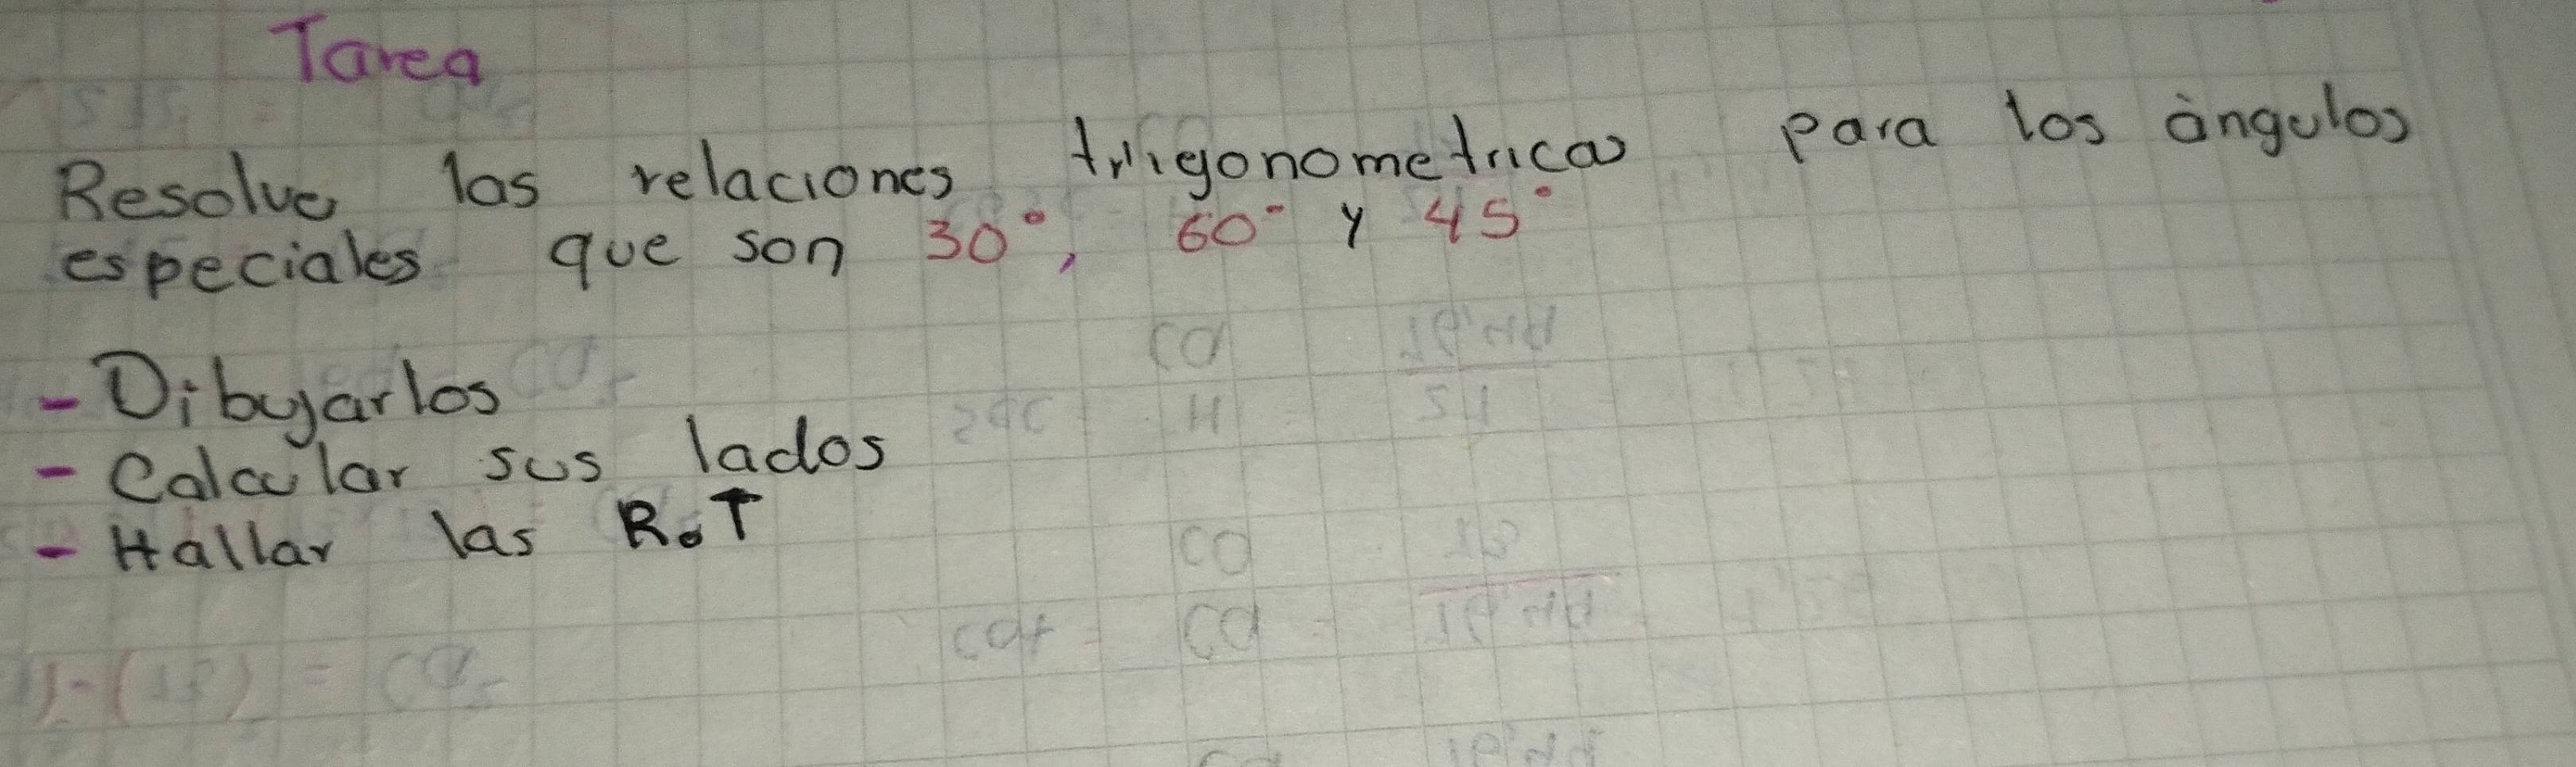 Tarea
Resolve las relaciones trigonometricas para los ángulos
especiales que son 30°, 60° y 45°
- Dibujarlos
- Calcular sus lados
- Hallar las R.T